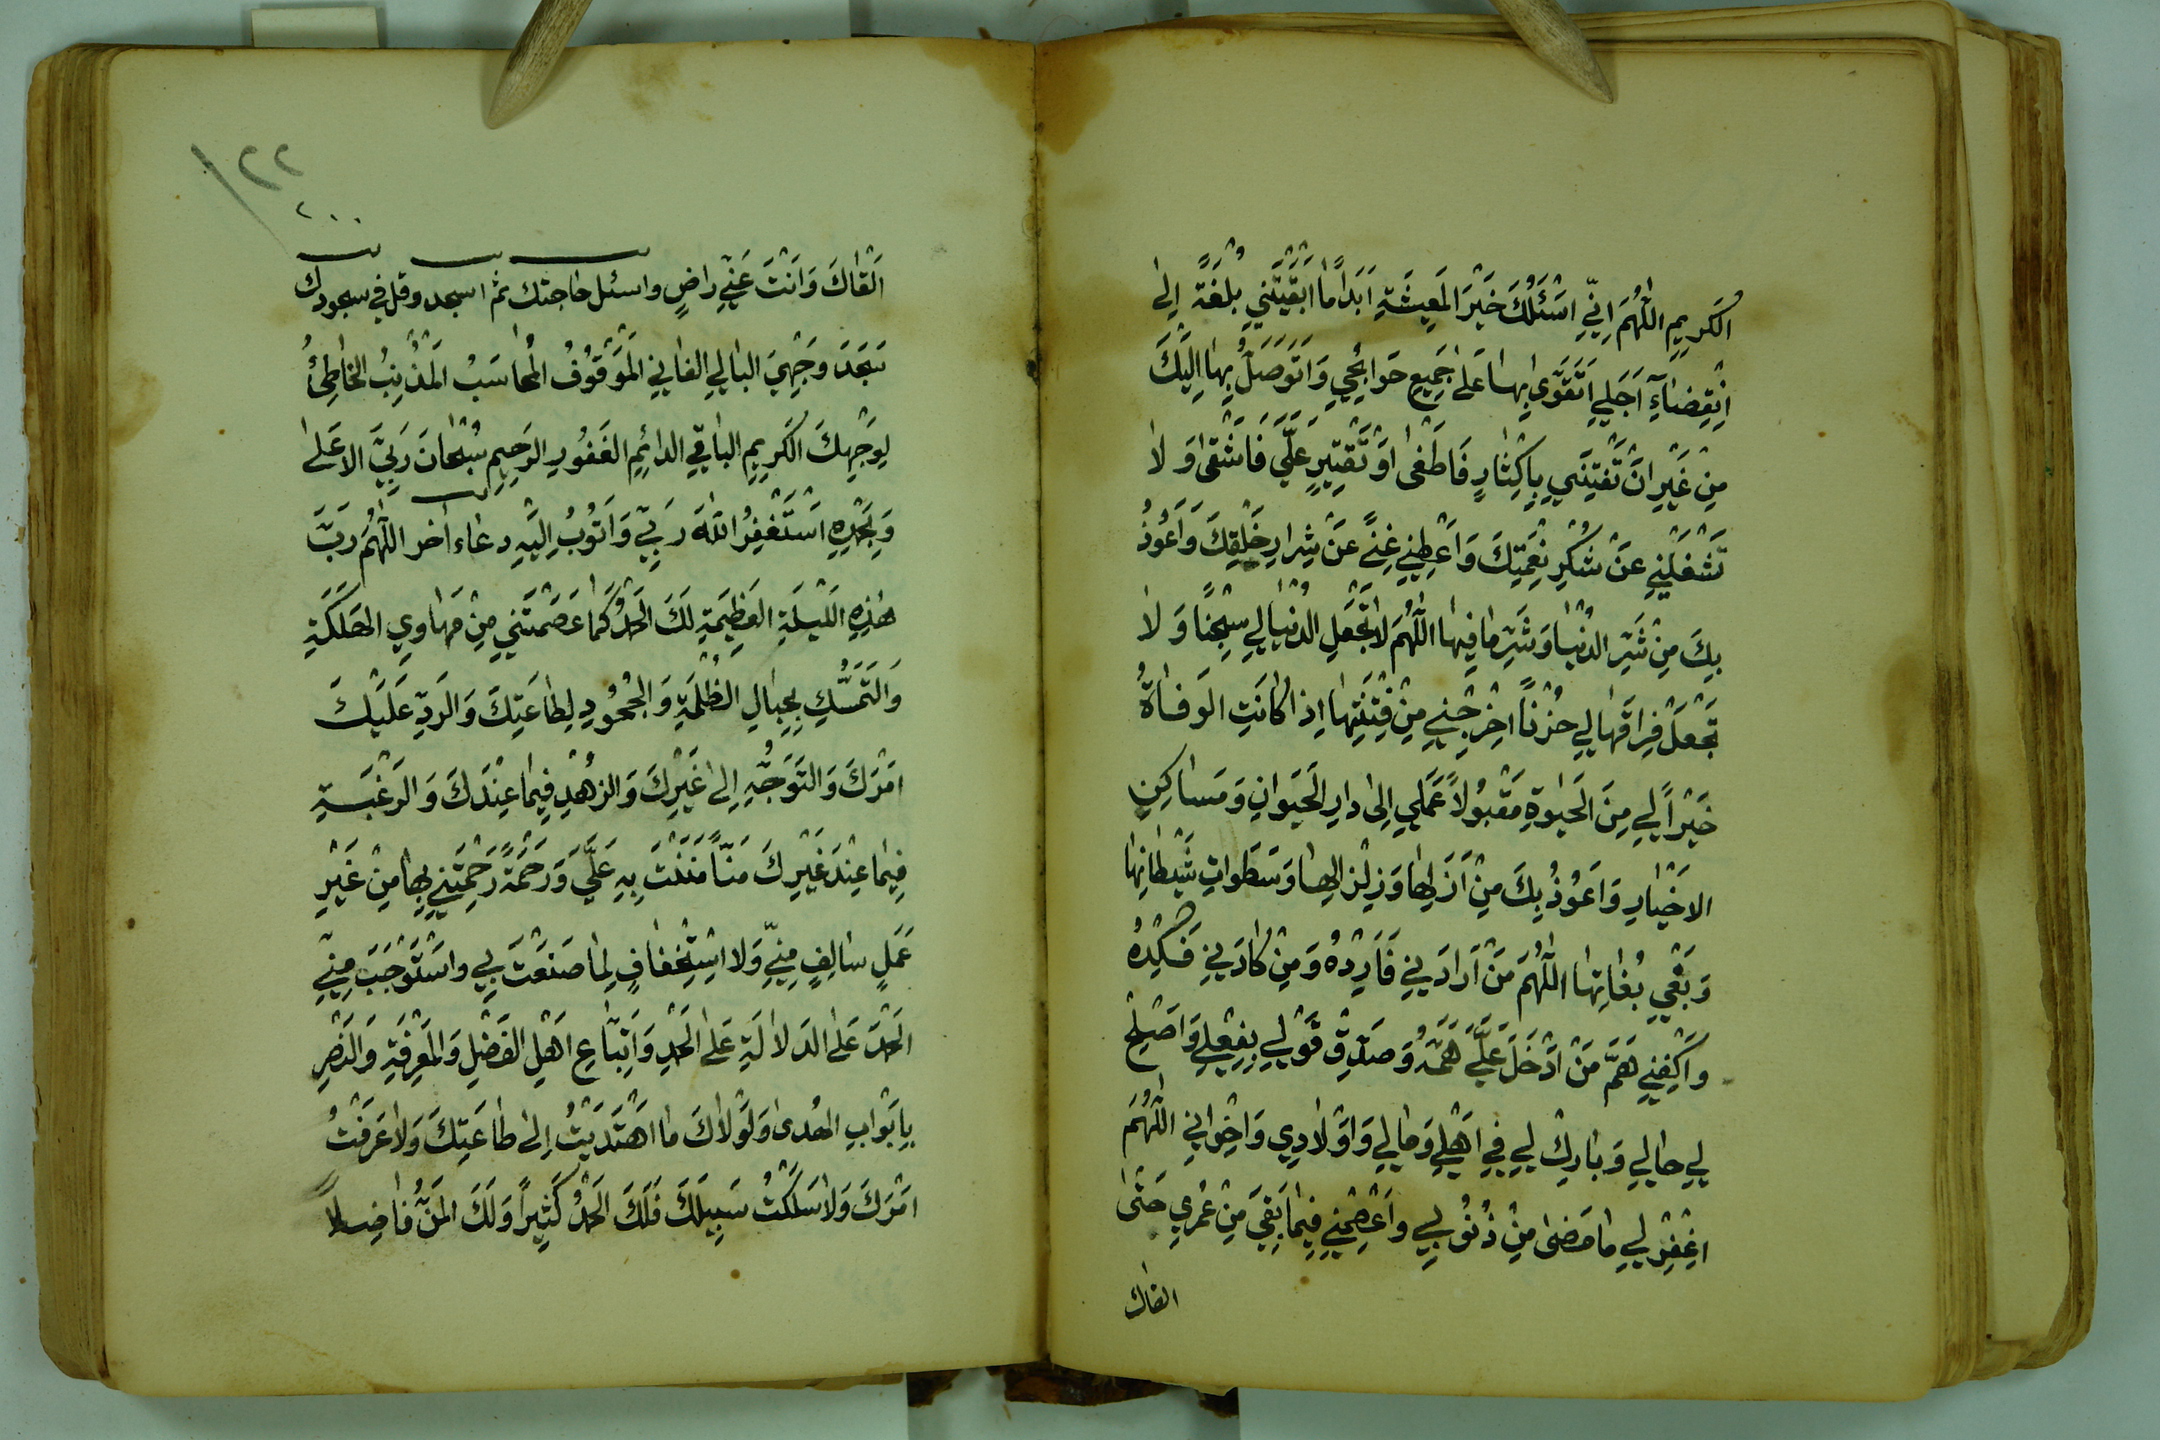 الكَرِيمِ اللّٰهُمَّ اِنّي اَسْئَلُكَ خَيْرَ المَعِيشَةِ اَبَداً مٰا اَبْقَيْتَنِي بُلْغَةً اِلىٰ
اِنْقِضٰاءِ اَجَلِي اَتَقَوّىٰ بِهٰا عَلىٰ جَمِيعِ حَوٰائِجِي وَاَتَوَصَّلُ بِهٰا اِلَيْكَ
مِنْ غَيْرِ اَنْ تَفْتِنَنِي بِاِكْثٰارٍ فَاَطْغىٰ اَوْ تَقْتِيرٍ عَلَيَّ فَاَشْقىٰ وَلاٰ
تَشْغَلْنِي عَنْ شُكْرِ نِعْمَتِكَ وَاَعْطِنِي غِنًى عَنْ شِرٰارِ خَلْقِكَ وَاَعُوذُ
بِكَ مِنْ شَرِّ الدُّنْيٰا وَشَرِّ مٰا فِيهٰا اللّٰهُمَّ لاٰ تَجْعَلِ الدُّنْيٰا لِي سِجْنًا وَلاٰ
تَجْعَلْ فِرٰاقَهٰا لِي حُزْنًا اَخْرِجْنِي مِنْ فِتْنَتِهٰا اِذٰا كٰانَتِ الوَفٰاةُ
خَيْراً لِي مِنَ الحَيٰوةِ مَقْبُولاً عَمَلِي اِلىٰ دٰارِ الحَيَوٰانِ وَمَسٰاكِنِ
الاَخْيٰارِ وَاَعُوذُ بِكَ مِنْ اَزْلِهٰا وَزِلْزٰالِهٰا وَسَطَوٰاتِ شَيْطٰانِهٰا
وَبَغْيِ بُغٰاتِهٰا اللّٰهُمَّ مَنْ اَرٰادَنِي فَاَرِدْهُ وَمَنْ كٰادَنِي فَكِدْهُ
وَاكْفِنِي هَمَّ مَنْ اَدْخَلَ عَلَيَّ هَمَّهُ وَصَدِّقْ قَوْلِي بِفِعْلِي وَاَصْلِحْ
لِي حٰالِي وَبٰارِكْ لِي فِي اَهْلِي وَمٰالِي وَاَوْلاٰدِي وَاِخْوٰانِي اللّٰهُمَّ
اغْفِرْ لِي مٰا مَضىٰ مِنْ ذُنُوبِي وَاعْصِمْنِي فِيمٰا بَقِيَ مِنْ عُمْرِي حَتّىٰ
القاك
٢٢
٢٠٠
اَلْقٰاكَ وَاَنْتَ عَنِّي رٰاضٍ واسئل حاجتك ثم اسجد وقل في سجودك
سَجَدَ وَجْهِيَ البٰالِي الفٰانِي المَوْقُوفُ المُحٰاسَبُ المُذْنِبُ الخٰاطِئُ
لِوَجْهِكَ الكَرِيمِ البٰاقِي الدٰائِمِ الغَفُورِ الرَحِيمِ سُبْحٰانَ رَبِّيَ الاَعْلىٰ
وَبِحَمْدِهِ اَسْتَغْفِرُ اللّٰهَ رَبِّي وَاَتُوبُ اِلَيْهِ دعاء اخر اللّٰهُمَّ رَبَّ
هٰذِهِ اللَيْلَةِ العَظِيمَةِ لَكَ الحَمْدُ كَمٰا عَصَمْتَنِي مِنْ مَهٰاوِي الهَلَكَةِ
وَالتَمَسُّكِ بِحِبٰالِ الظُلْمَةِ وَالجُحُودِ لِطٰاعَتِكَ وَالرَدِّ عَلَيْكَ
اَمْرَكَ وَالتَوَجُّهِ اِلىٰ غَيْرِكَ وَالزُهْدِ فِيمٰا عِنْدَكَ وَالرَغْبَةِ
فِيمٰا عِنْدَ غَيْرِكَ مَنّاً مَنَنْتَ بِهِ عَلَيَّ وَرَحْمَةً رَحِمْتَنِي بِهٰا مِنْ غَيْرِ
عَمَلٍ سٰالِفٍ مِنِّي وَلاَ اسْتِخْفٰافٍ لِمٰا صَنَعْتَ بِي وَاسْتَوْجَبَ مِنِّي
الحَمْدَ عَلىٰ الدَلاٰلَةِ عَلىٰ الحَمْدِ وَاتِّبٰاعِ اَهْلِ الفَضْلِ وَالمَعْرِفَةِ وَالبَصَرِ
بِاَبْوٰابِ الهُدىٰ وَلَوْلاٰكَ مٰا اهْتَدَيْتُ اِلىٰ طٰاعَتِكَ وَلاٰ عَرَفْتُ
اَمْرَكَ وَلاٰ سَلَكْتُ سَبِيلَكَ فَلَكَ الحَمْدُ كَثِيراً وَلَكَ المَنُّ فٰاضِلاً